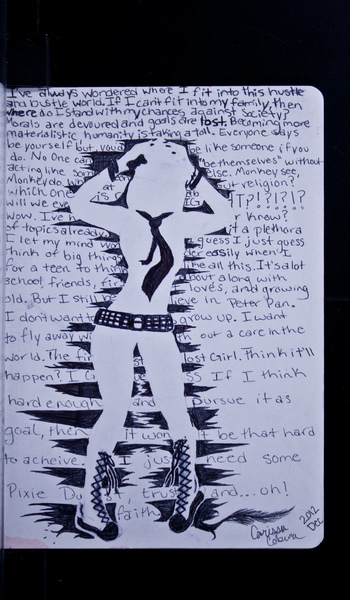 I've always wondered where I fit into this hustle
and bustle world. If I can't fit into my family, then
where do I stand with my chances against society?
Morals are devoured and goals are lost. Becoming more
materialistic humanity is taking a toll. Everyone says
be yourself but, you be like someone if you
do. No One can "be themselves" without
acting like som else. Monkey see,
Monkey do it religion?
which one at is ab IT?!?!?!?
will we ev r know?
Wow. I've it a plethora
of topics already guess I just guess
I let my mind w der easily when I
think of big thing like all this. It's alot
for a teen to thin bout along with
school friends, fir loves, and growing
old. But I still be ieve in Peter Pan.
I don't want to grow up. I want
to fly away wi th out a care in the
world. The fir lost Girl. Think it'll
happen? I If I think
hard enough and pursue it as
goal, then it won t be that hard
to acheive. I jus need some
Pixie Du , trus and...oh!
faith
2012
Dec